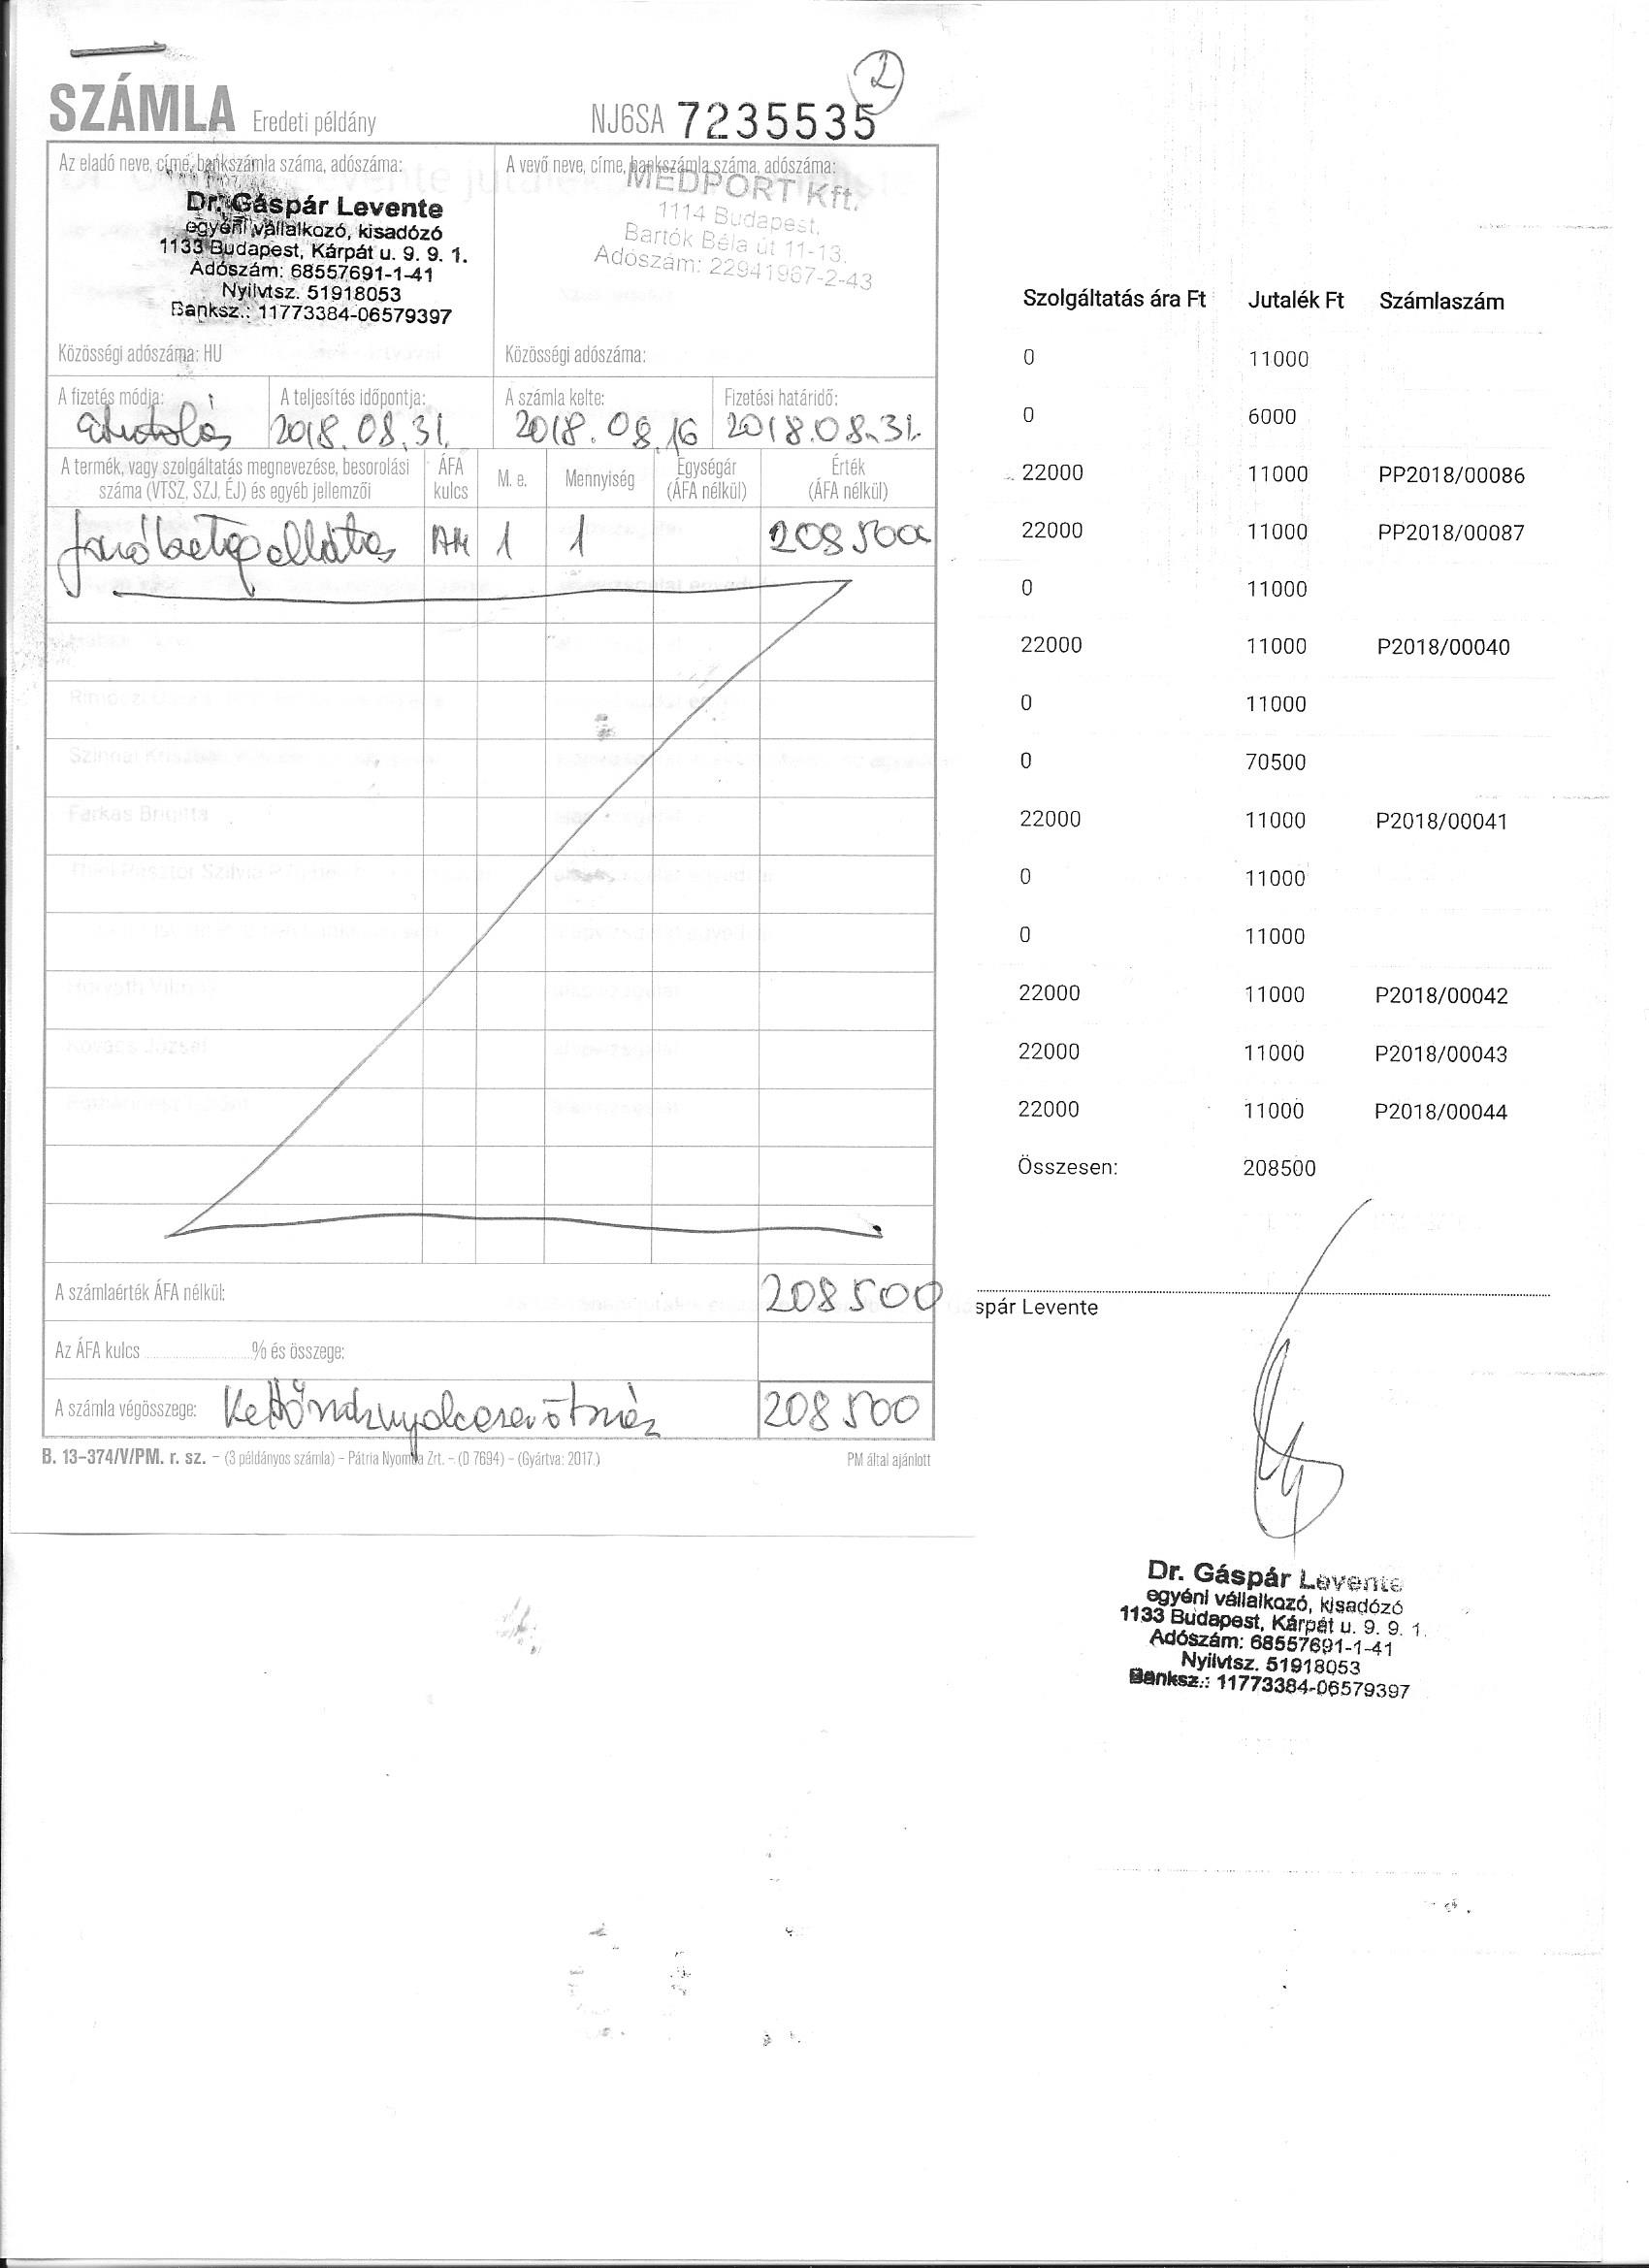 2
SZÁMLA Eredeti példány NJ6SA 7235535
Az eladó neve, címe, bankszámla száma, adószáma:
Dr. Gáspár Levente
egyéni vállalkozó, kisadózó
1133 Budapest, Kárpát u. 9. 9. 1.
Adószám: 68557691-1-41
Nyilvtsz. 51918053
Banksz.: 11773384-06579397
Közösségi adószáma: HU
A vevő neve, címe, bankszámla száma, adószáma:
MEDPORT Kft.
1114 Budapest,
Bartók Béla út 11-13.
Adószám: 22941967-2-43
Közösségi adószáma:
A fizetés módja: A teljesítés időpontja: A számla kelte: Fizetési határidő:
átutalás 2018.08.31. 2018.08.16 2018.08.31.
A termék, vagy szolgáltatás megnevezése, besorolási száma (VTSZ, SZJ, ÉJ) és egyéb jellemzői ÁFA kulcs M. e. Mennyiség Egységár (ÁFA nélkül) Érték (ÁFA nélkül)
járóbetegellátás AM 1 1 208500
Farkas Brigitta
A számlaérték ÁFA nélkül: 208500
Az ÁFA kulcs ........................% és összege:
A számla végösszege: 208500
B. 13-374/V/PM. r. sz. – (3 példányos számla) – Pátria Nyomda Zrt. – (D 7694) – (Gyártva: 2017.) PM által ajánlott
Szolgáltatás ára Ft Jutalék Ft Számlaszám
0 11000
0 6000
22000 11000 PP2018/00086
22000 11000 PP2018/00087
0 11000
22000 11000 P2018/00040
0 11000
0 70500
22000 11000 P2018/00041
0 11000
0 11000
22000 11000 P2018/00042
22000 11000 P2018/00043
22000 11000 P2018/00044
Összesen: 208500
spár Levente
Dr. Gáspár Levente
egyéni vállalkozó, kisadózó
1133 Budapest, Kárpát u. 9. 9. 1.
Adószám: 68557691-1-41
Nyilvtsz. 51918053
Banksz.: 11773384-06579397